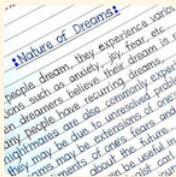 Nature of Dreams:
people dream, they experience various
such as anxiety, joy, fear, etc.
dreamers believe their dream is r
people have recurring dreams,
nightmares are also commonly experi
may be due to unresolved probl
may be extensions of one's
of one's fears and
about the future.
can be useful in